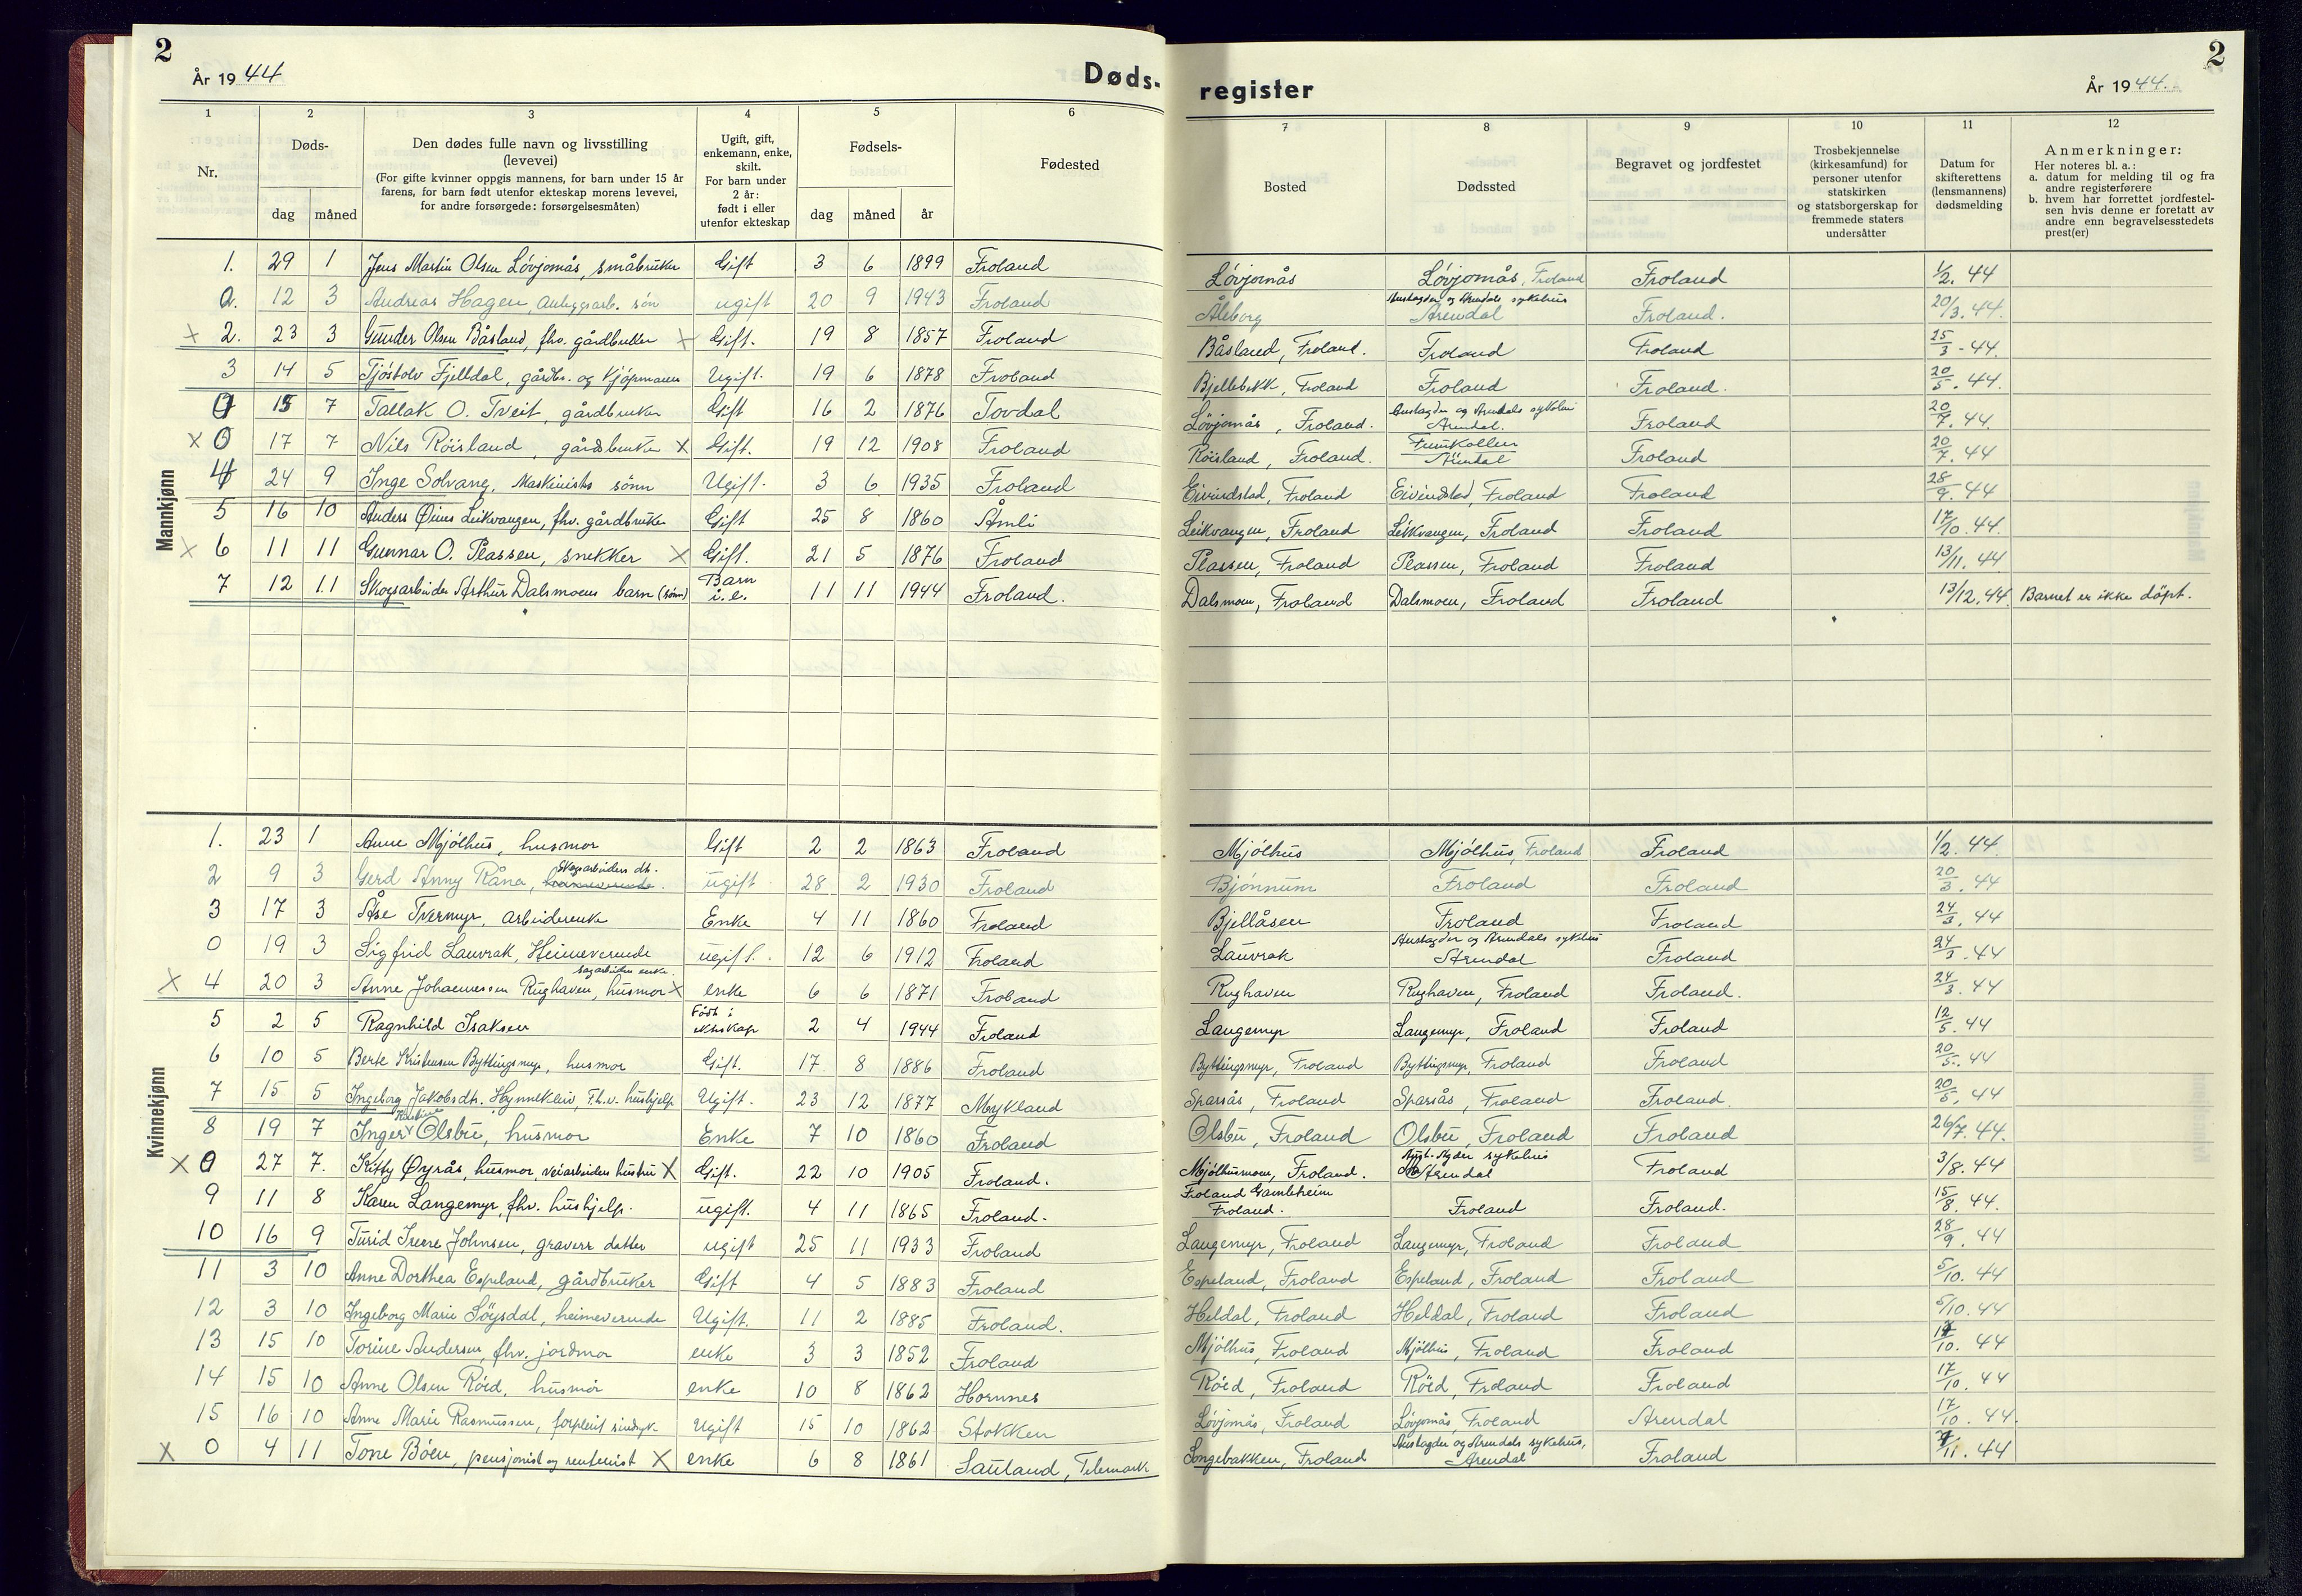 2
År 1944
Døds-
1 2 3 4 5 6
Nr.
Døds-
dag måned
Den dødes fulle navn og livsstilling
(levevei)
(For gifte kvinner oppgis mannens, for barn under 15 år
farens, for barn født utenfor ekteskap morens levevei,
for andre forsørgede: forsørgelsesmåten)
Ugift, gift,
enkemann, enke,
skilt.
For barn under
2 år:
født i eller
utenfor ekteskap
Fødsels-
dag måned år
Fødested
Mannkjønn
1. 29 1 Jens Martin Olsen Lövjomås, småbruker Gift 3 6 1899 Froland
0. 12 3 Andreas Hagen, Anleggsarb. sön ugift 20 9 1943 Froland
x 2. 23 3 Gunder Olsen Båsland, fhv. gårdbruker x Gift. 19 8 1857 Froland
3 14 5 Tjöstolv Fjelldal, gårdbr. og kjöpmann Ugift. 19 6 1878 Froland
0 15 7 Tallak O. Tveit, gårdbruker Gift 16 2 1876 Tovdal
x 0 17 7 Nils Röisland, gårdbruker x Gift. 19 12 1908 Froland
4 24 9 Inge Solvang, Maskinists sönn Ugift. 3 6 1935 Froland
5 16 10 Anders Leikvangen, fhv. gårdbruker Gift 25 8 1860 Åmli
x 6 11 11 Gunnar O. Plassen, snekker x Gift. 21 5 1876 Froland
7 12 11 Skogsarbeider Arthur Dalsmoens barn (sönn) Barn i.e. 11 11 1944 Froland.
Kvinnekjønn
1. 23 1 Anne Mjölhus, husmor Gift 2 2 1863 Froland
2 9 3 Gerd Anny Råna, Skogsarbeiders dt. ugift 28 2 1930 Froland
3 17 3 Åse Tvermyr, arbeiderenke Enke 4 11 1860 Froland
0 19 3 Sigfrid Lauvrak, Heimeverende ugift. 12 6 1912 Froland
x 4 20 3 Anne Johannessen Rughaven, husmor sagarbeider enke. x enke 6 6 1871 Froland
5 2 5 Ragnhild Isaksen Födt i ekteskap 2 4 1944 Froland
6 10 5 Berte Kristensen Byttingsmyr, husmor Gift. 17 8 1886 Froland
7 15 5 Ingeborg Jakobsdt. Hynnekleiv, fh.v. hushjelp Ugift. 23 12 1877 Mykland
8 19 7 Inger Olsbu, husmor Enke 7 10 1860 Froland
x 0 27 7. Kitty Øyrås, husmor, veiarbeider hustru x Gift. 22 10 1905 Froland.
9 11 8 Karen Langemyr, fhv. hushjelp. ugift. 4 11 1865 Froland.
10 16 9 Turid Irene Johnsen, gravers datter ugift 25 11 1933 Froland
11 3 10 Anne Dorthea Espeland, gårdbruker Gift 4 5 1883 Froland
12 3 10 Ingeborg Marie Lögsdal, heimeverende Ugift. 11 2 1885 Froland.
13 15 10 Torine Andersen, fhv. jordmor enke 3 3 1852 Froland
14 15 10 Anne Olsen Röed, husmor enke 10 8 1862 Hornnes
15 16 10 Anne Marie Rasmussen, forpleiet Ugift 15 10 1862 Stokken
x 0 4 11 Tone Böen, pensjonist og rentenist x enke 6 8 1861 Sauland, Telemark
register
År 1944.
2
7 8 9 10 11 12
Bosted
Dødssted
Begravet og jordfestet
Trosbekjennelse
(kirkesamfund) for
personer utenfor
statskirken
og statsborgerskap for
fremmede staters
undersåtter
Datum for
skifterettens
(lensmannens)
dødsmelding
Anmerkninger:
Her noteres bl. a.:
a. datum for melding til og fra
andre registerførere
b. hvem har forrettet jordfestel-
sen hvis denne er foretatt av
andre enn begravelsesstedets
prest(er)
Lövjomås Lövjomås, Froland Froland 1/2. 44
Åleborg Austagder og Arendals sykehus Arendal Froland. 20/3. 44.
Båsland, Froland. Froland Froland 25/3 - 44.
Bjellebekk, Froland Froland Froland. 20/5. 44.
Lövjomås, Froland. Austagder og Arendals sykehus Arendal. Froland 20/7. 44.
Röisland, Froland. Arendal Froland 20/7. 44
Eivindstad, Froland Eivindstad, Froland Froland 28/9. 44
Leikvangen, Froland Leikvangen, Froland Froland 17/10. 44.
Plassen, Froland Plassen, Froland Froland 13/11. 44
Dalsmoen, Froland Dalsmoen, Froland Froland 13/12. 44. Barnet er ikke döpt.
Mjölhus Mjölhus, Froland Froland 1/2. 44.
Bjönnum Froland Froland 20/3. 44
Bjellåsen Froland Froland 24/3. 44
Lauvrak Austagder og Arendals sykehus Arendal Froland 24/3. 44
Rughaven Rughaven, Froland Froland. 24/3. 44
Langemyr Langemyr, Froland Froland 12/5. 44
Byttingsmyr, Froland Byttingsmyr, Froland Froland 20/5. 44
Sparsås, Froland Sparsås, Froland Froland. 20/5. 44
Olsbu, Froland Olsbu, Froland Froland 26/7. 44.
Mjölhusmoen, Froland. Aust-Agder sykehus Arendal Froland 3/8. 44
Froland Gamleheim Froland. Froland Froland. 15/8. 44.
Langemyr, Froland Langemyr, Froland Froland 28/9. 44
Espeland, Froland Espeland, Froland Froland 5/10. 44
Heldal, Froland Heldal, Froland Froland 5/10. 44
Mjölhus, Froland Mjölhus, Froland Froland 17/10. 44
Röed, Froland Röed, Froland Froland 17/10. 44
Lövjomås, Froland Lövjomås, Froland Arendal 17/10. 44.
Songebakken, Froland Austagder og Arendals sykehus, Arendal Froland 7/11. 44